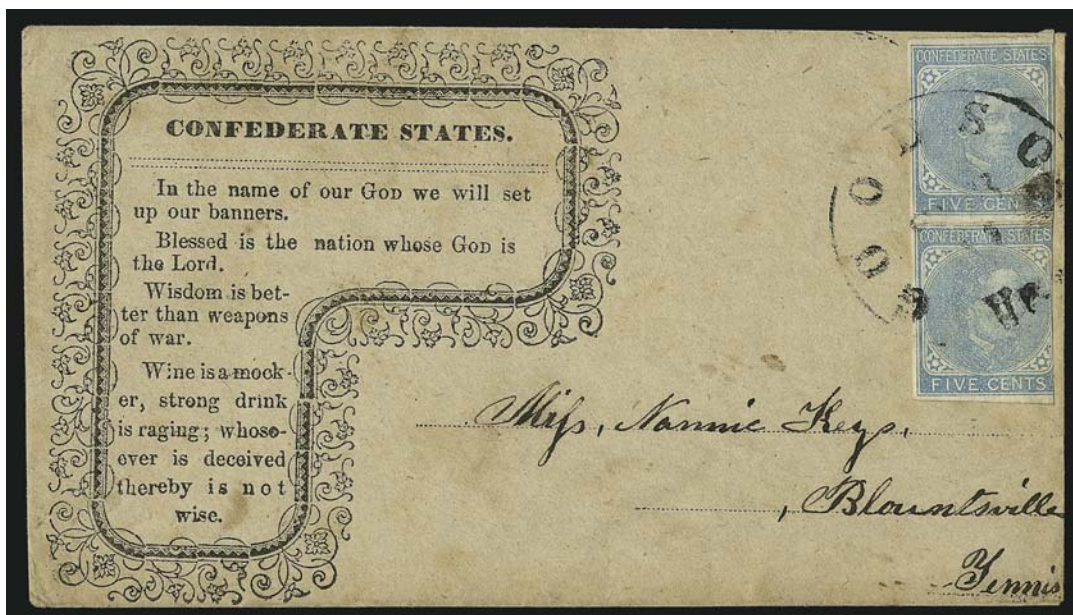 CONFEDERATE STATES.
In the name of our GOD we will set
up our banners.
Blessed is the nation whose GOD is
the Lord.
Wisdom is bet-
ter than weapons
of war.
Wine is a mock-
er, strong drink
is raging; whoso-
ever is deceived
thereby is not
wise.
CONFEDERATE STATES
FIVE CENTS
CONFEDERATE STATES
FIVE CENTS
Miss, Nannie Keys,
Blountsville
Tennis